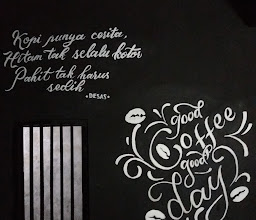 Kopi punya cerita,
Hitam tak selalu kotor
Pahit tak harus
sedih
•DESAS•
good
Coffee
good
day